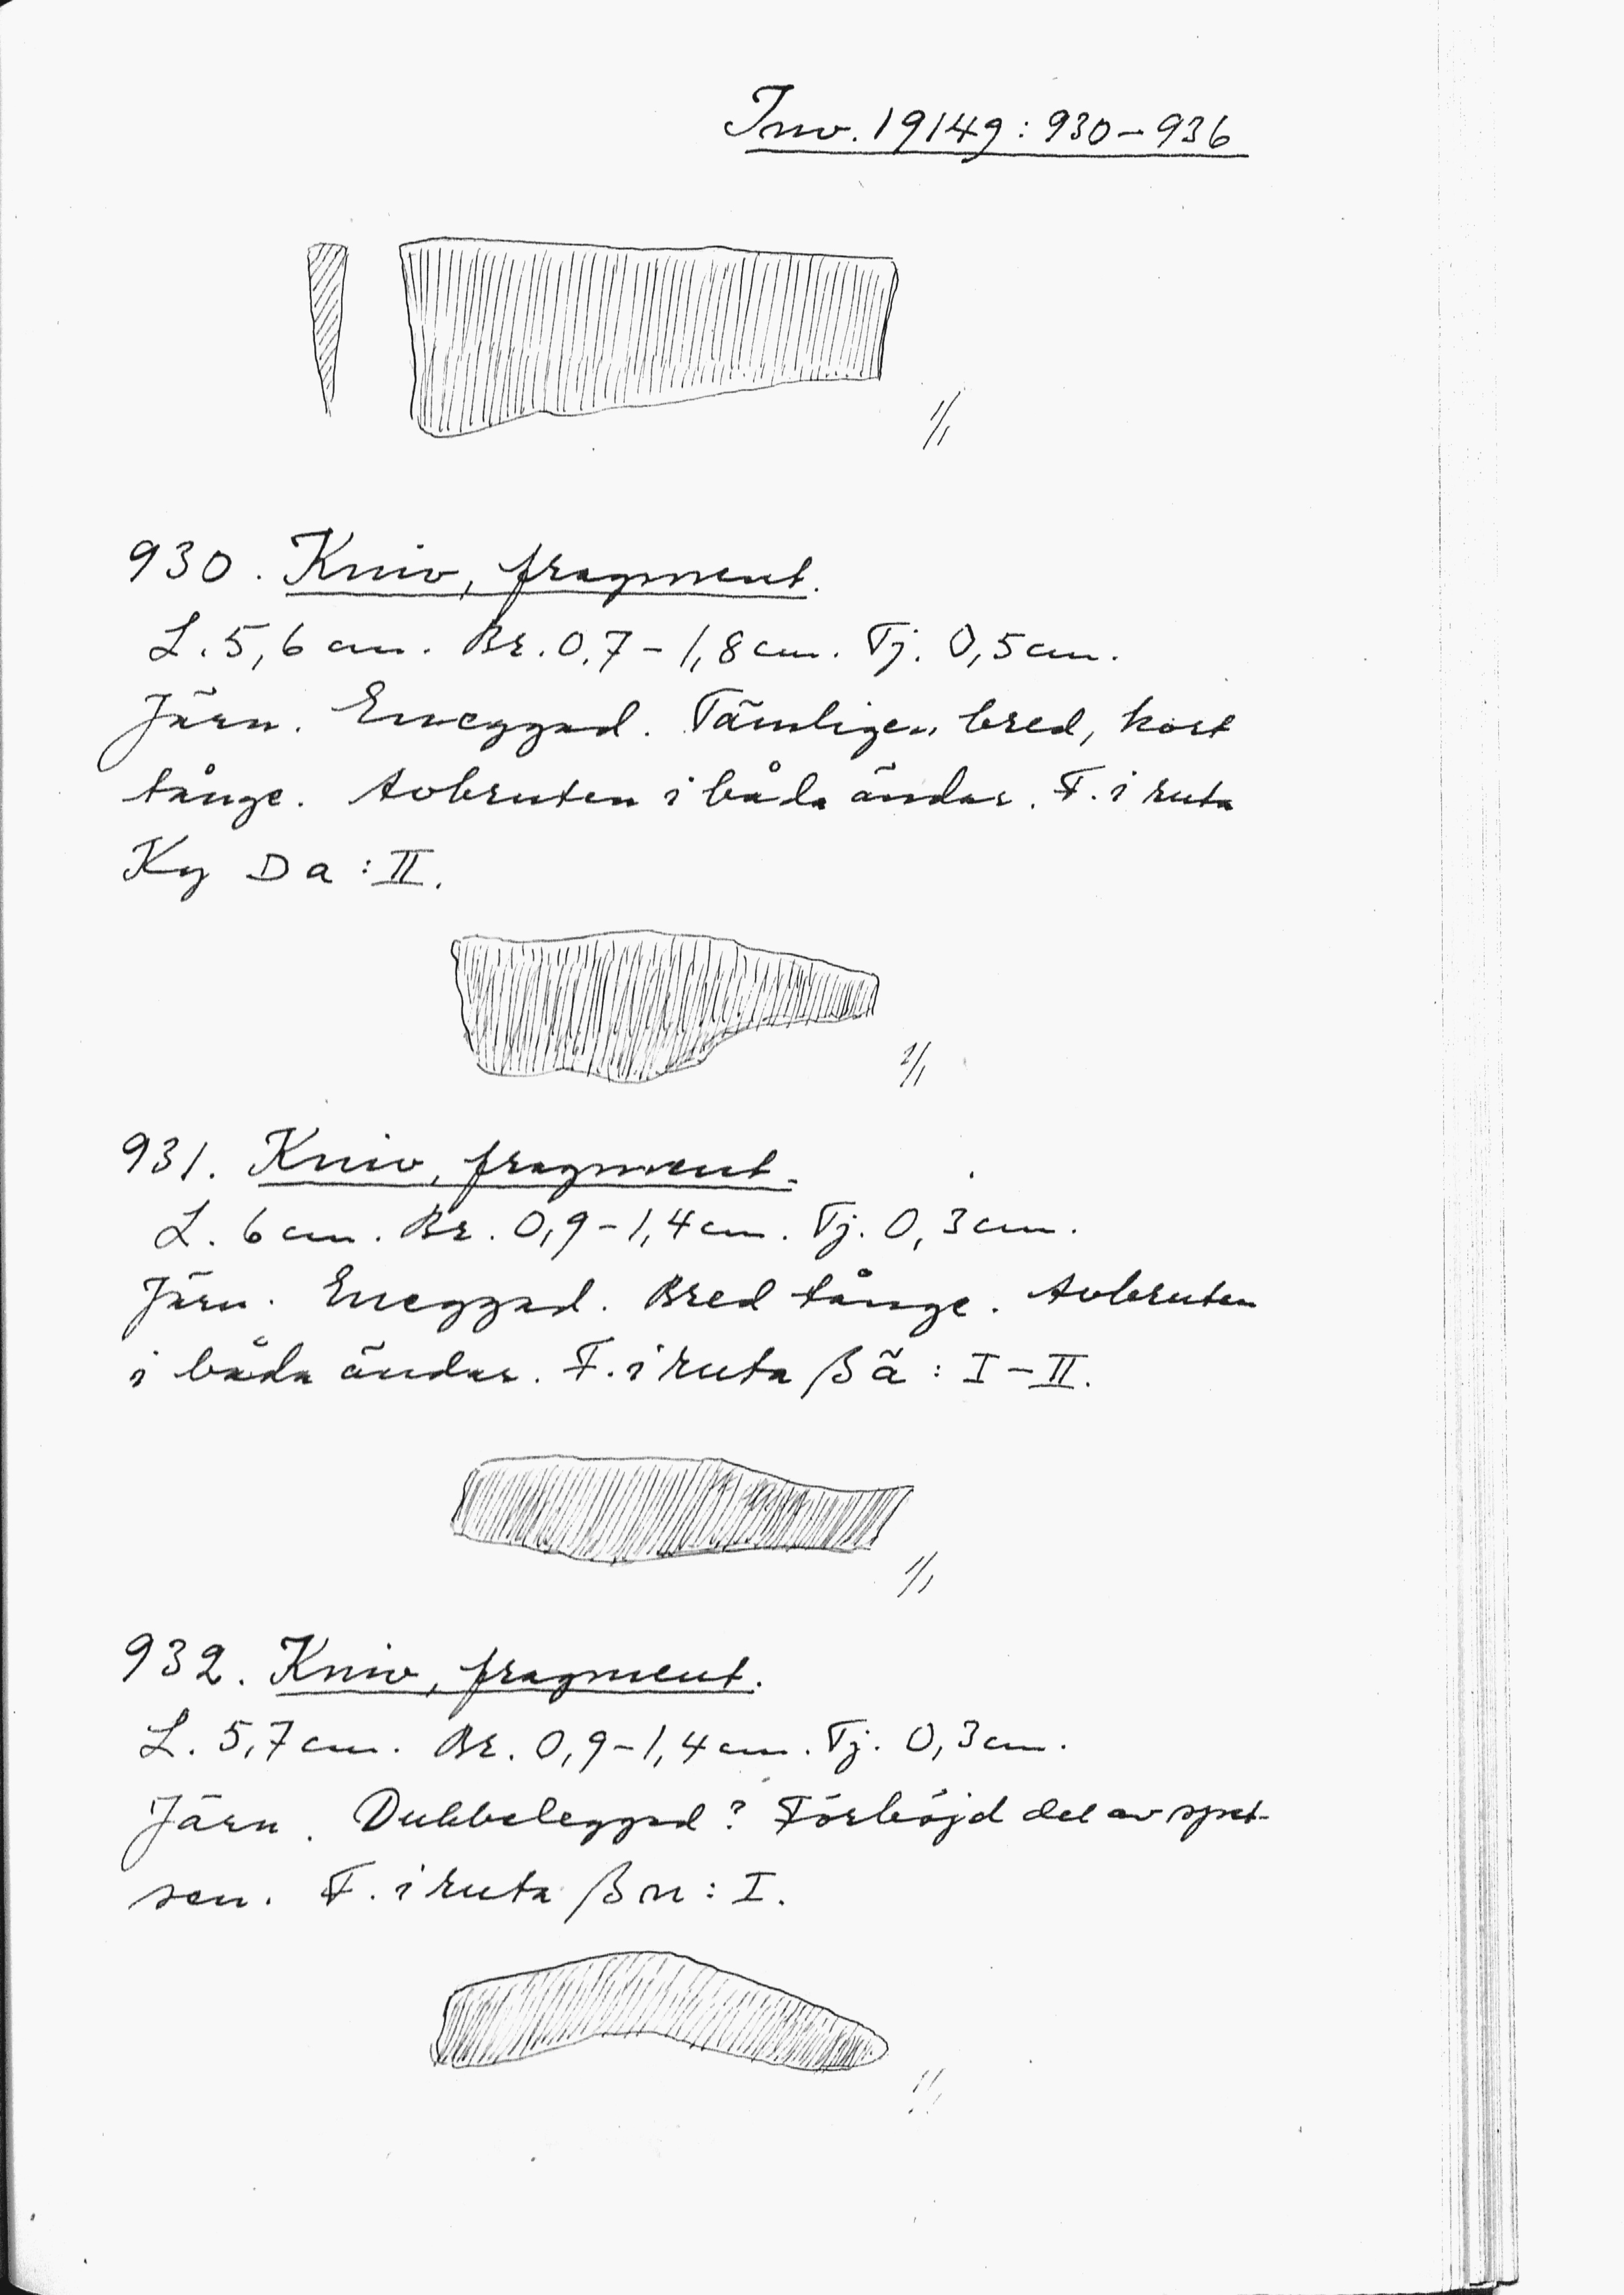 Inv. 19149: 930-936
1/1
930. Kniv, fragment.
L. 5,6 cm. Br. 0,7-1,8 cm. Tj. 0,5 cm.
Järn. Eneggad. Tämligen bred, kort
tånge. Avbruten i båda ändar. F. i ruta
Kg Da: II.
1/1
931. Kniv, fragment.
L. 6 cm. Br. 0,9-1,4 cm. Tj. 0,3 cm.
Järn. Eneggad. Bred tånge. Avbruten
i båda ändar. F. i ruta ßä: I-II.
1/1
932. Kniv, fragment.
L. 5,7 cm. Br. 0,9-1,4 cm. Tj. 0,3 cm.
Järn. Dubbeleggad? Förböjd del av spet-
sen. F. i ruta ßn: I.
1/1